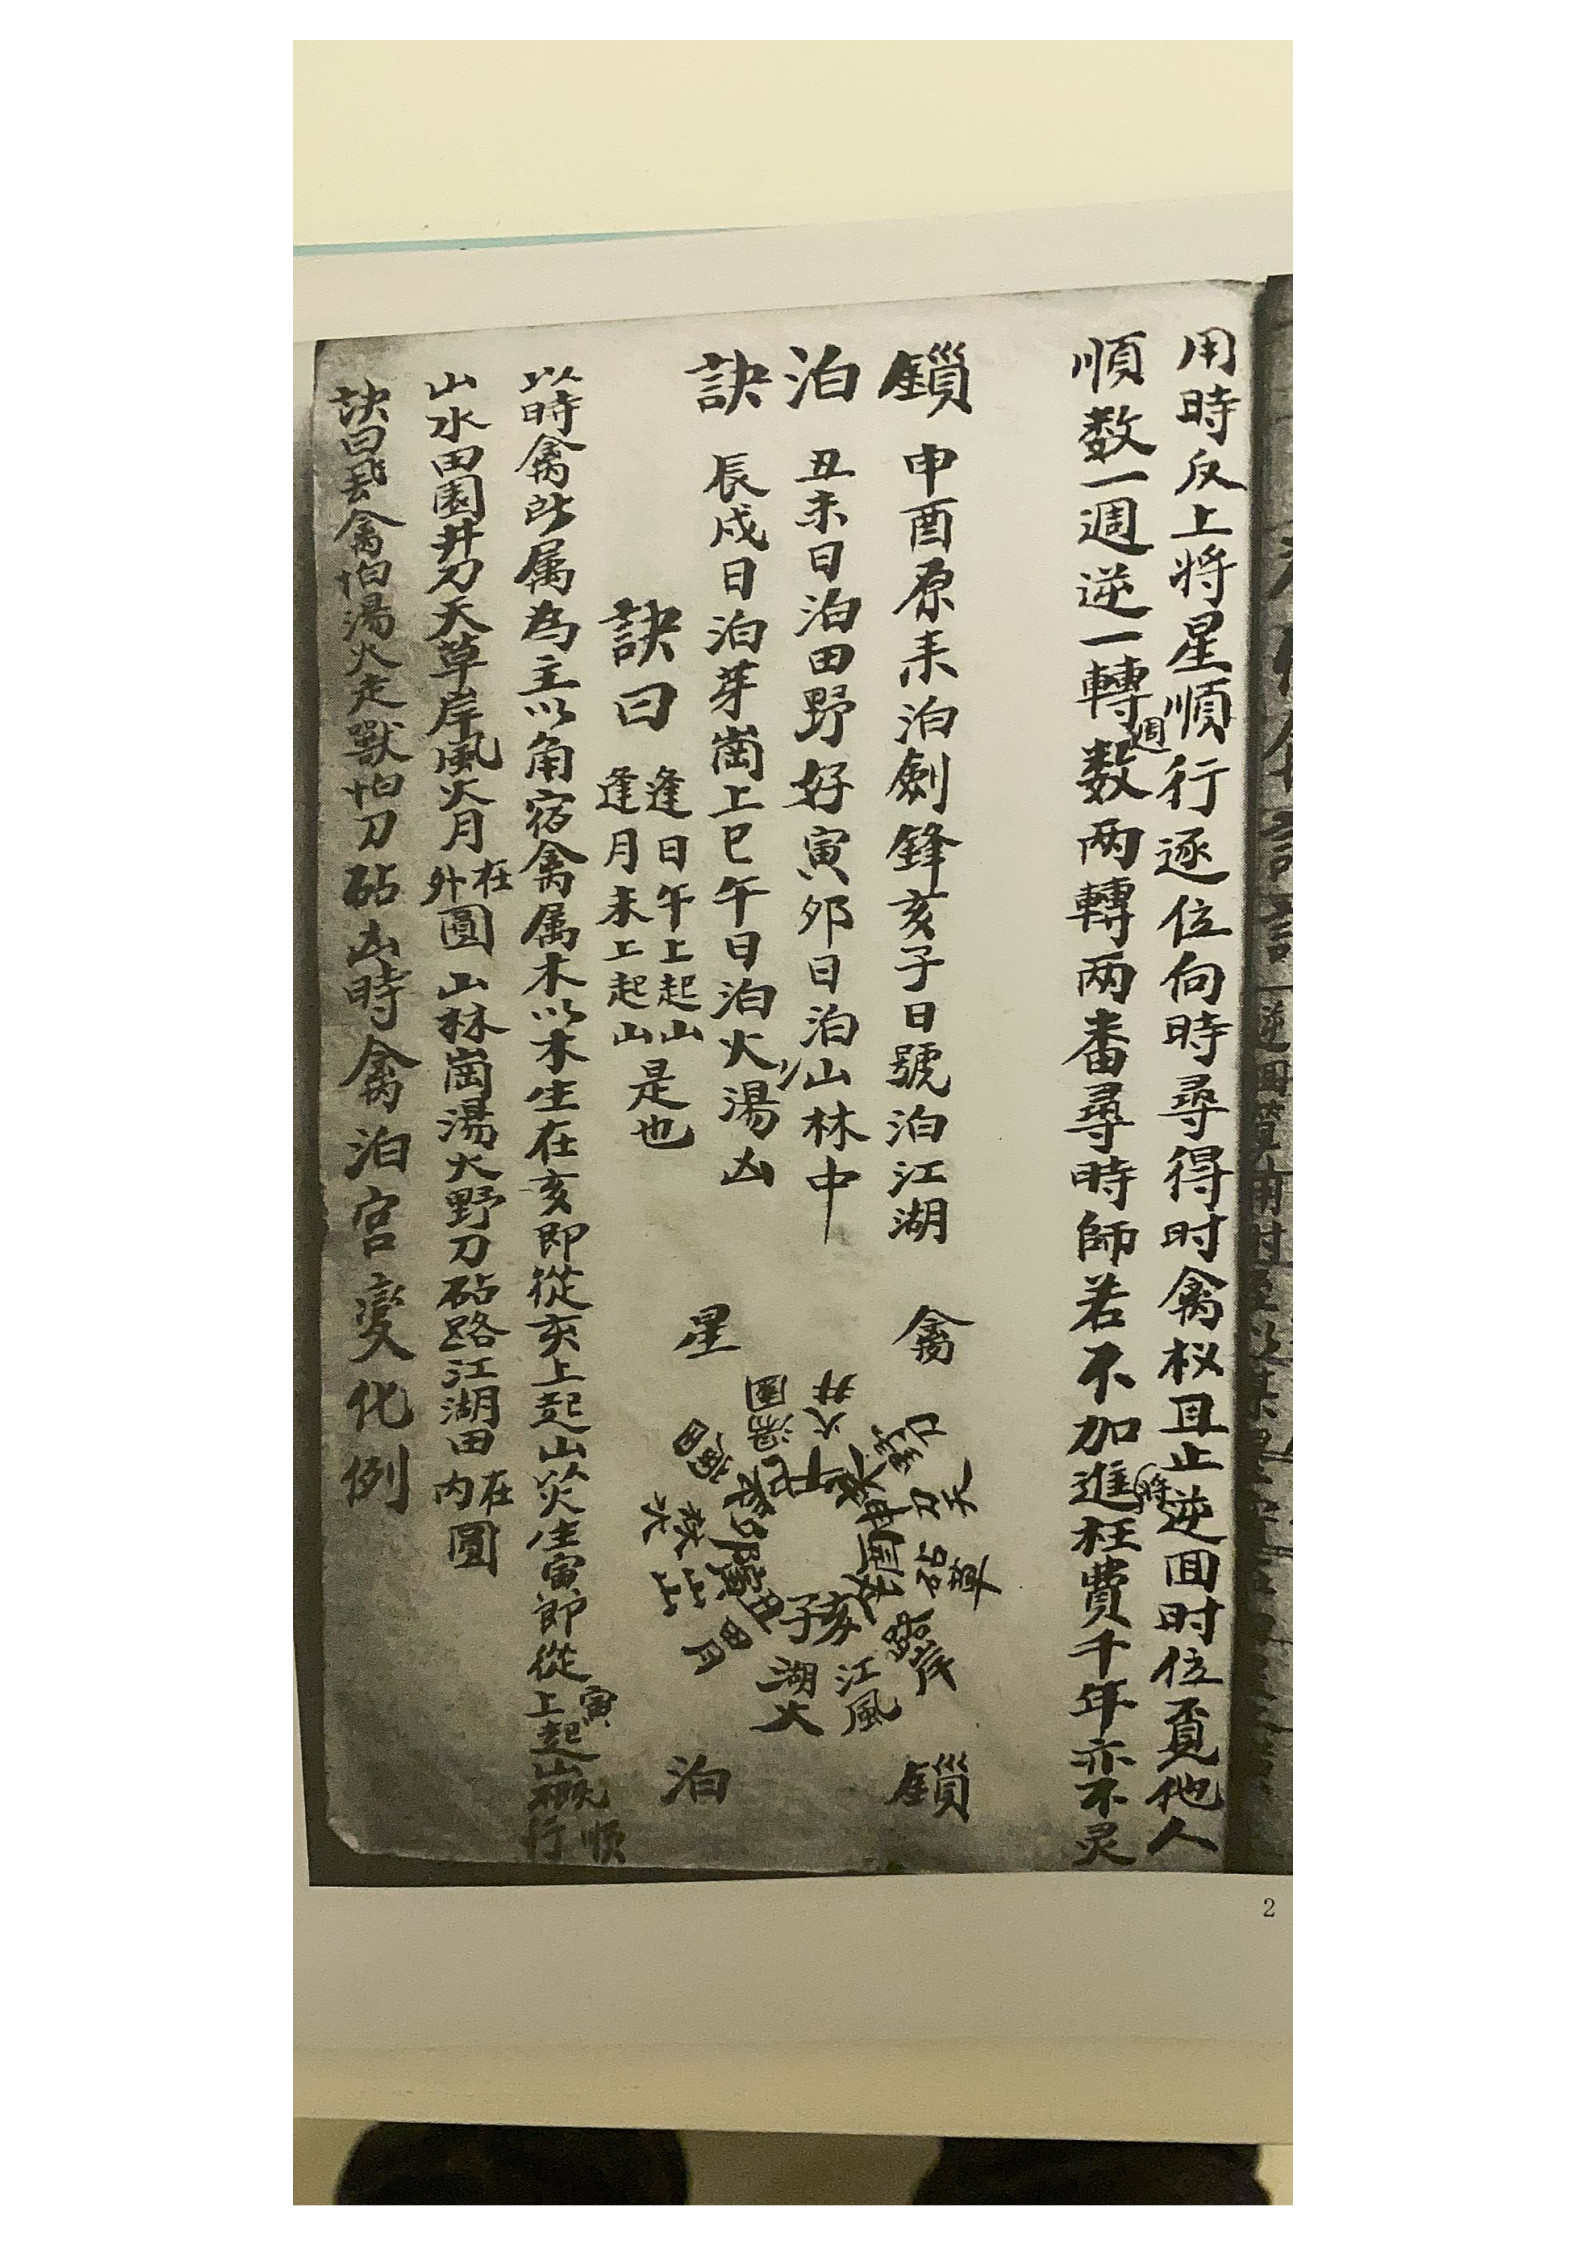 用時反上将星順行逐位向時尋得时禽权且止逆回时位頁他人
順数一週逆一轉週数两轉两番尋時師若不加進將枉費千年亦不灵
鎖 申酉原来泊劍鋒亥子日號泊江湖
泊 丑未日泊田野好寅夘日泊山林中
訣 辰戌日泊芽崗上巳午日泊火湯凶
訣曰 逢日午上起山
逢月未上起山 是也
禽
星
鎖
泊
井火
園湯
崗田
水林
山山
月田
湖火
江風
岸路
草砧
天刀
野
午
巳
辰
夘
寅
丑
子
亥
戌
酉
申
未
以時禽所属為主以角宿禽属木以木生在亥即從亥上起山災生寅即從寅上起山概順行
山水田園井刀天草岸風火月在外圓 山林崗湯火野刀砧路江湖田在内圓
訣曰飛禽怕湯火走獸怕刀砧凶時禽泊宫变化例
2